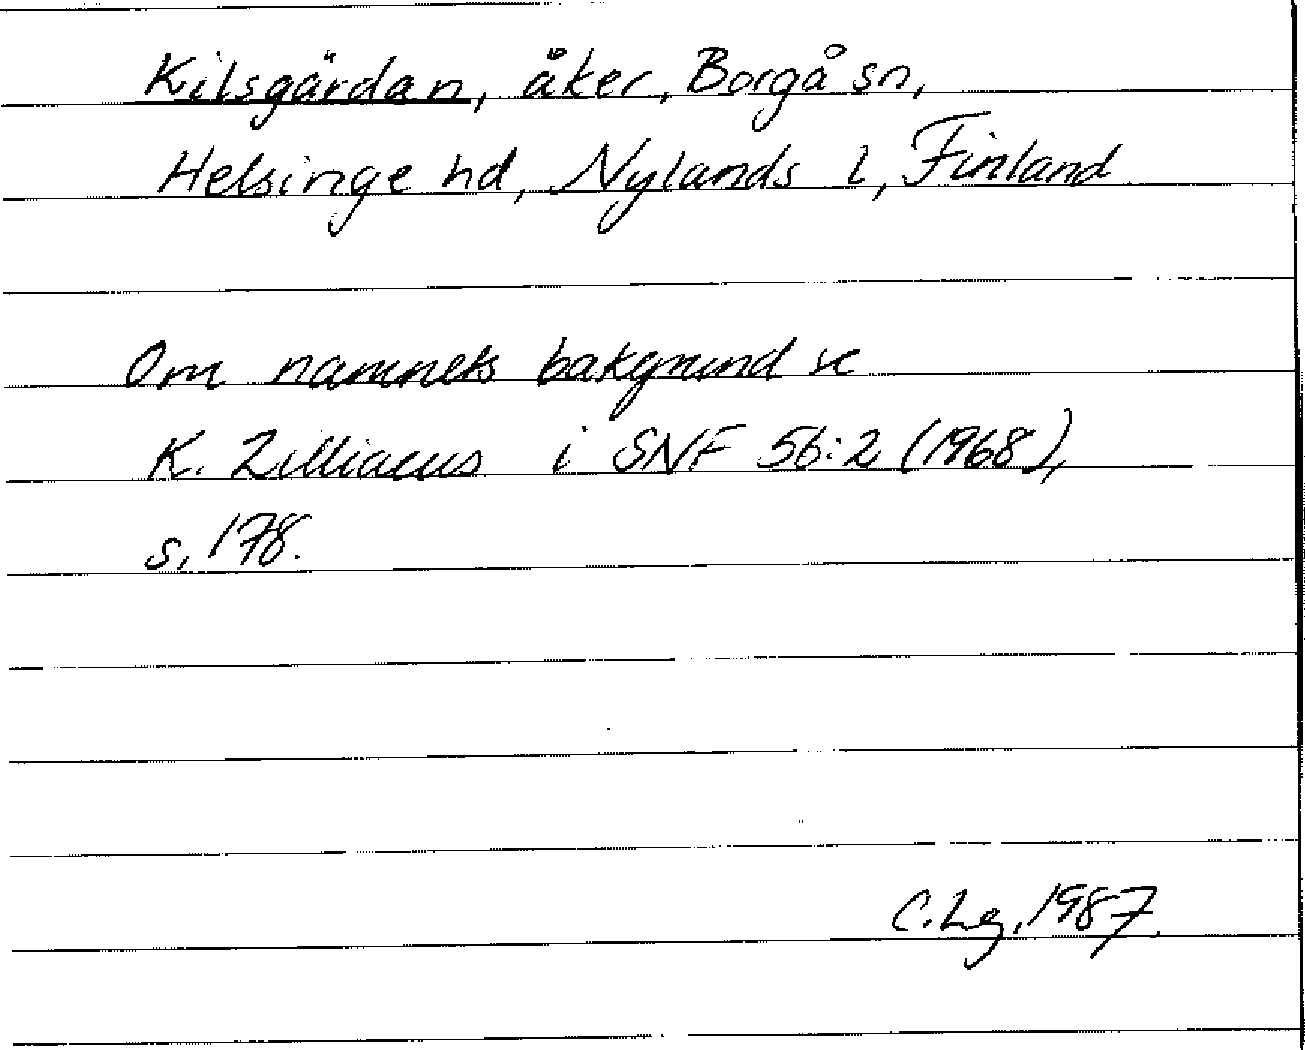 Kilsgärdan, åker, Borgå sn,
Helsinge hd, Nylands l, Finland
Om namnets bakgrund se
K. Zilliacus i SNF 56:2 (1968),
s, 178.
C. Lg, 1987.